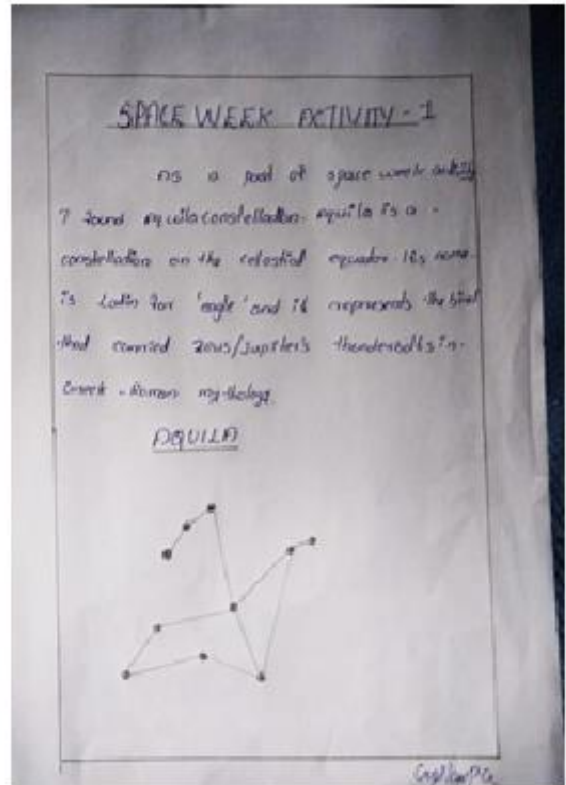 SPACE WEEK ACTIVITY - 1
As a part of space week activity
I found aquila constellation. aquila is a
constellation on the celestial equator. Its name
is Latin for 'eagle' and it represents the bird
that carried Zeus/Jupiter's thunderbolts in
Greek - Roman mythology.
AQUILA